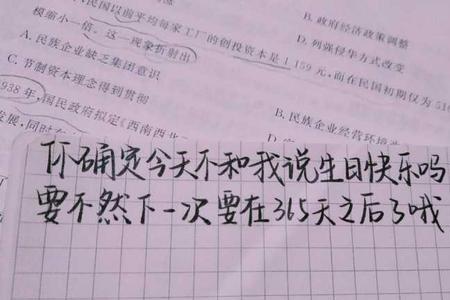 民国以前平均每家工厂的创投资本是1 159元,而在民国初期仅为51
模缩小一倍。这一现象折射出
B. 政府经济政策调整
A. 民族企业缺乏集团意识
D. 列强侵华方式改变
C. 节制资本理念得到贯彻
B. 民族企业经营环境
938年,国民政府拟定《西南西北
发展,同时
你确定今天不和我说生日快乐吗
要不然下一次要在365天之后了哦